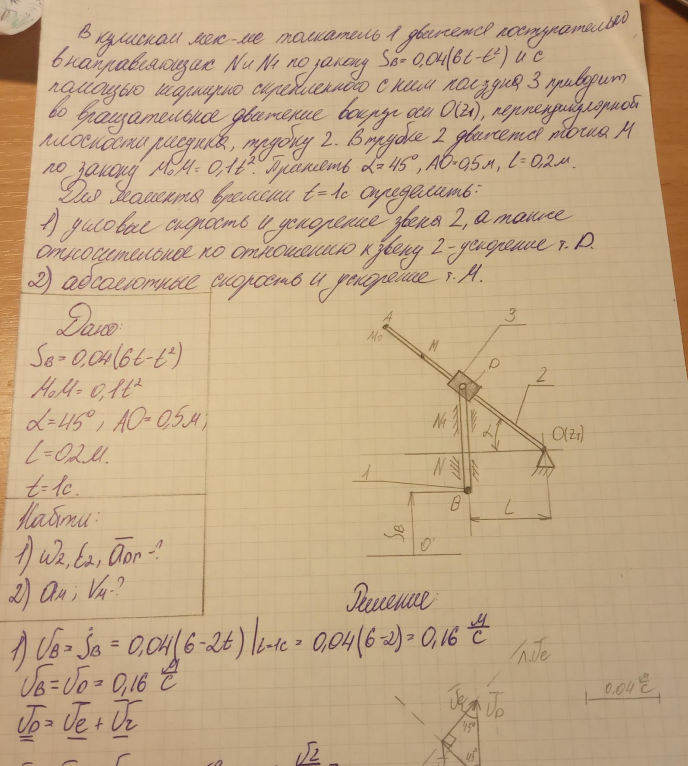 В кулисном мех-ме толкатель 1 движется поступательно
в направляющих N и N₁ по закону S_B=0,04(6t-t²) и с
помощью шарнирно скрепленного с ним ползуна 3 приводит
во вращательное движение вокруг оси O(Z₁), перпендикулярной
плоскости рисунка, трубку 2. В трубке 2 движется точка М
по закону M₀M=0,1t². Принять α=45°, AO=0,5м, l=0,2м.
Для момента времени t=1с определить:
1) угловые скорость и ускорение звена 2, а также
относительное по отношению к звену 2-ускорение т. D.
2) абсолютные скорость и ускорение т. М.
Дано:
S_B=0,04(6t-t²)
M₀M=0,1t²
α=45°, AO=0,5м;
l=0,2м.
t=1с.
Найти:
1) ω₂, ε₂, a̅_Dr-?
2) a_M; V_M-?
A
M₀
M
3
D
2
N₁
α
O(Z₁)
N
1
B
L
S_B
O'
Решение:
1) V_B=Ṡ_B=0,04(6-2t)|t=1с=0,04(6-2)=0,16 м/с
V_B=V_D=0,16 м/с
V̅_D=V̅_e+V̅_r
л.V̅e
0,04 м/с
V̅e
V̅_D
45°
45°